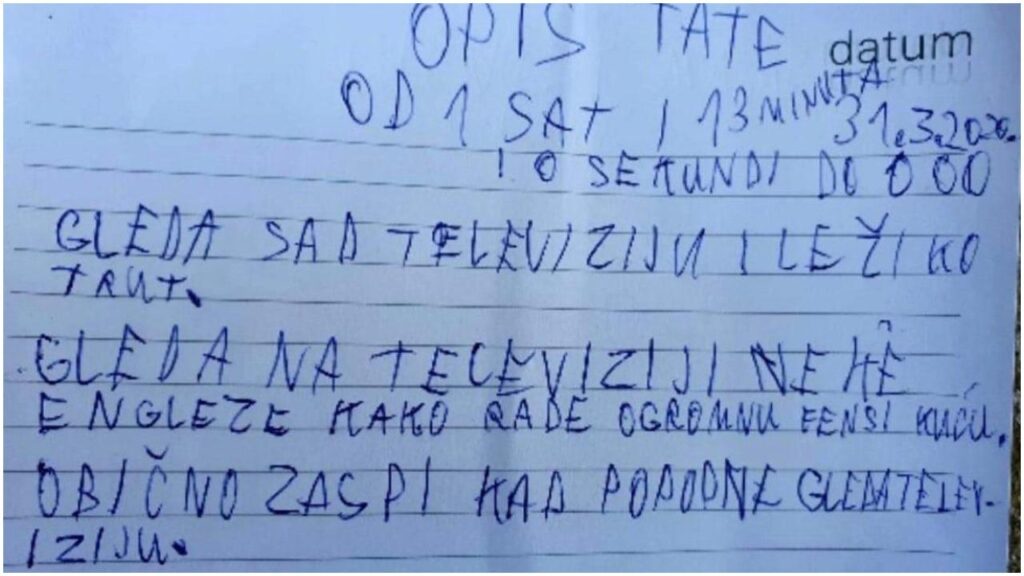 OPIS TATE
datum
OD 1 SAT I 13 MINUTA 31.3.2020.
I 0 SEKUNDI DO 0 00
GLEDA SAD TELEVIZIJU I LEŽI KO
TRUT.
GLEDA NA TELEVIZIJI NEKE
ENGLEZE KAKO RADE OGROMNU FENSI KUĆU.
OBIČNO ZASPI KAD POPODNE GLEDA TELEV-
IZIJU.